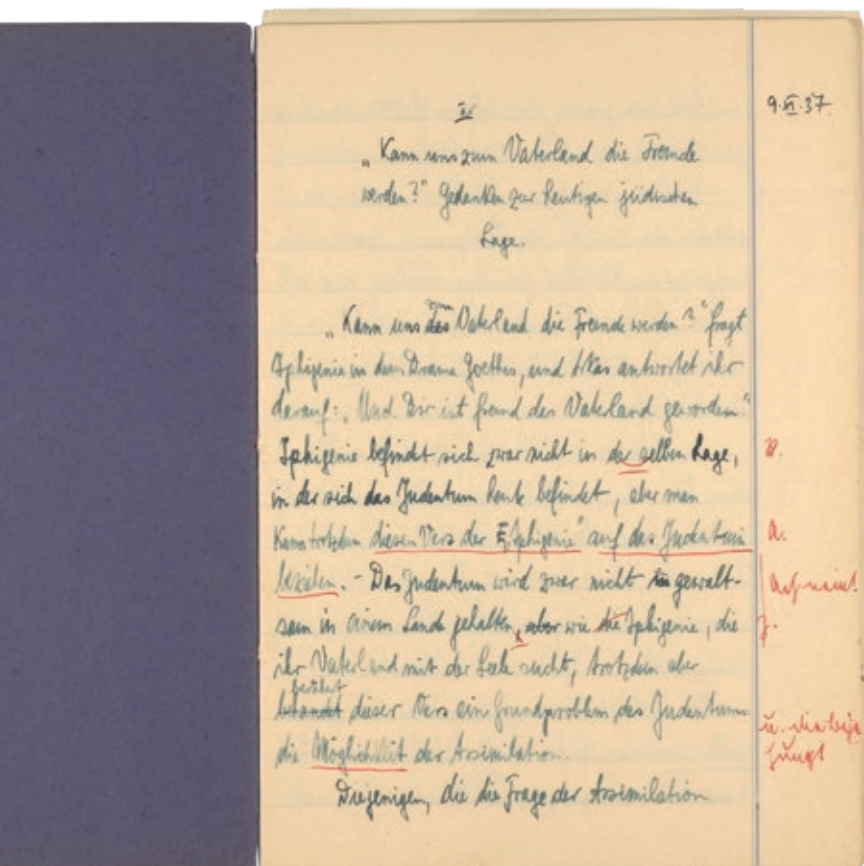 IV
9.XI.37.
„Kann uns zum Vaterland die Fremde
werden?" Gedanken zur heutigen jüdischen
Lage.
„Kann uns zum Vaterland die Fremde werden?" fragt
Iphigenie in dem Drama Goethes, und Arkas antwortet ihr
darauf: „Und Dir ist fremd das Vaterland geworden."
Iphigenie befindet sich zwar nicht in der selben Lage,
R.
in der sich das Judentum heute befindet, aber man
kann trotzdem diesen Vers der „Iphigenie" auf das Judentum
A.
beziehen. - Das Judentum wird zwar nicht gewalt-
sam in einem Lande gehalten, aber wie die Iphigenie, die
ihr Vaterland mit der Seele sucht, trotzdem aber
berührt
dieser Vers ein Grundproblem des Judentums
die Möglichkeit der Assimilation.
Diejenigen, die die Frage der Assimilation